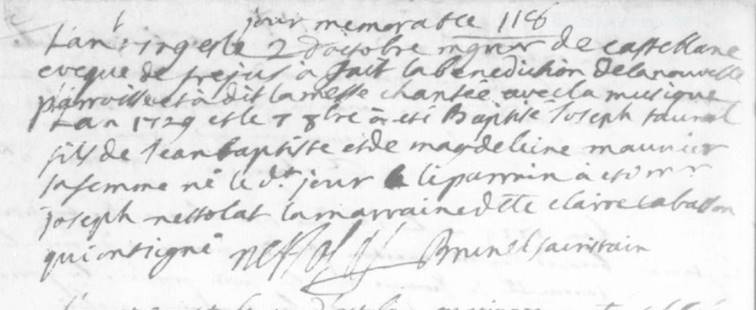 jour memorable 118
L'an 1729 et le 2 d'octobre mgneur de castellane
eveque de frejus à fait la benediction de la nouvelle
parroisse et à dit la messe chantée avec la musique
L'an 1729 et le 7 8bre à eté Baptisé Joseph faurel
fils de Jean baptiste et de magdeleine maunier
sa femme né le dt jour le parrain à eté mr
joseph nessolat la marraine dlle claire cabasson
qui ont signé Brunel sacristain